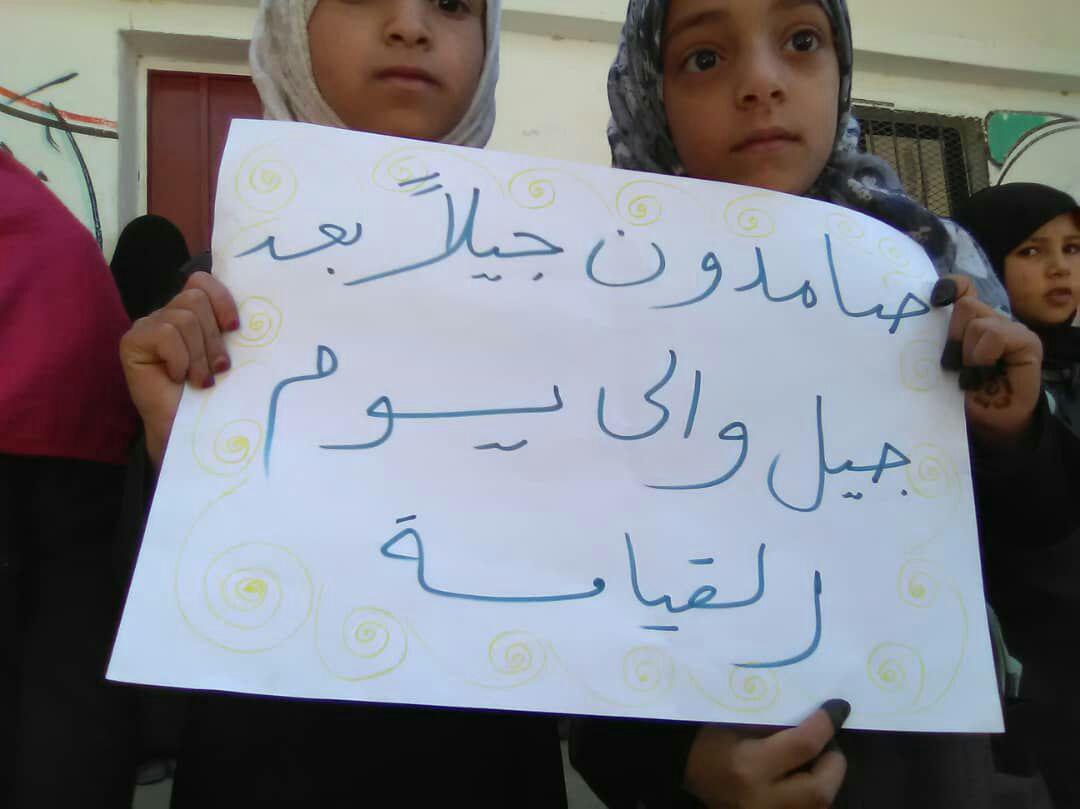 صامدون جيلاً بعد
جيل والى يوم
القيامة